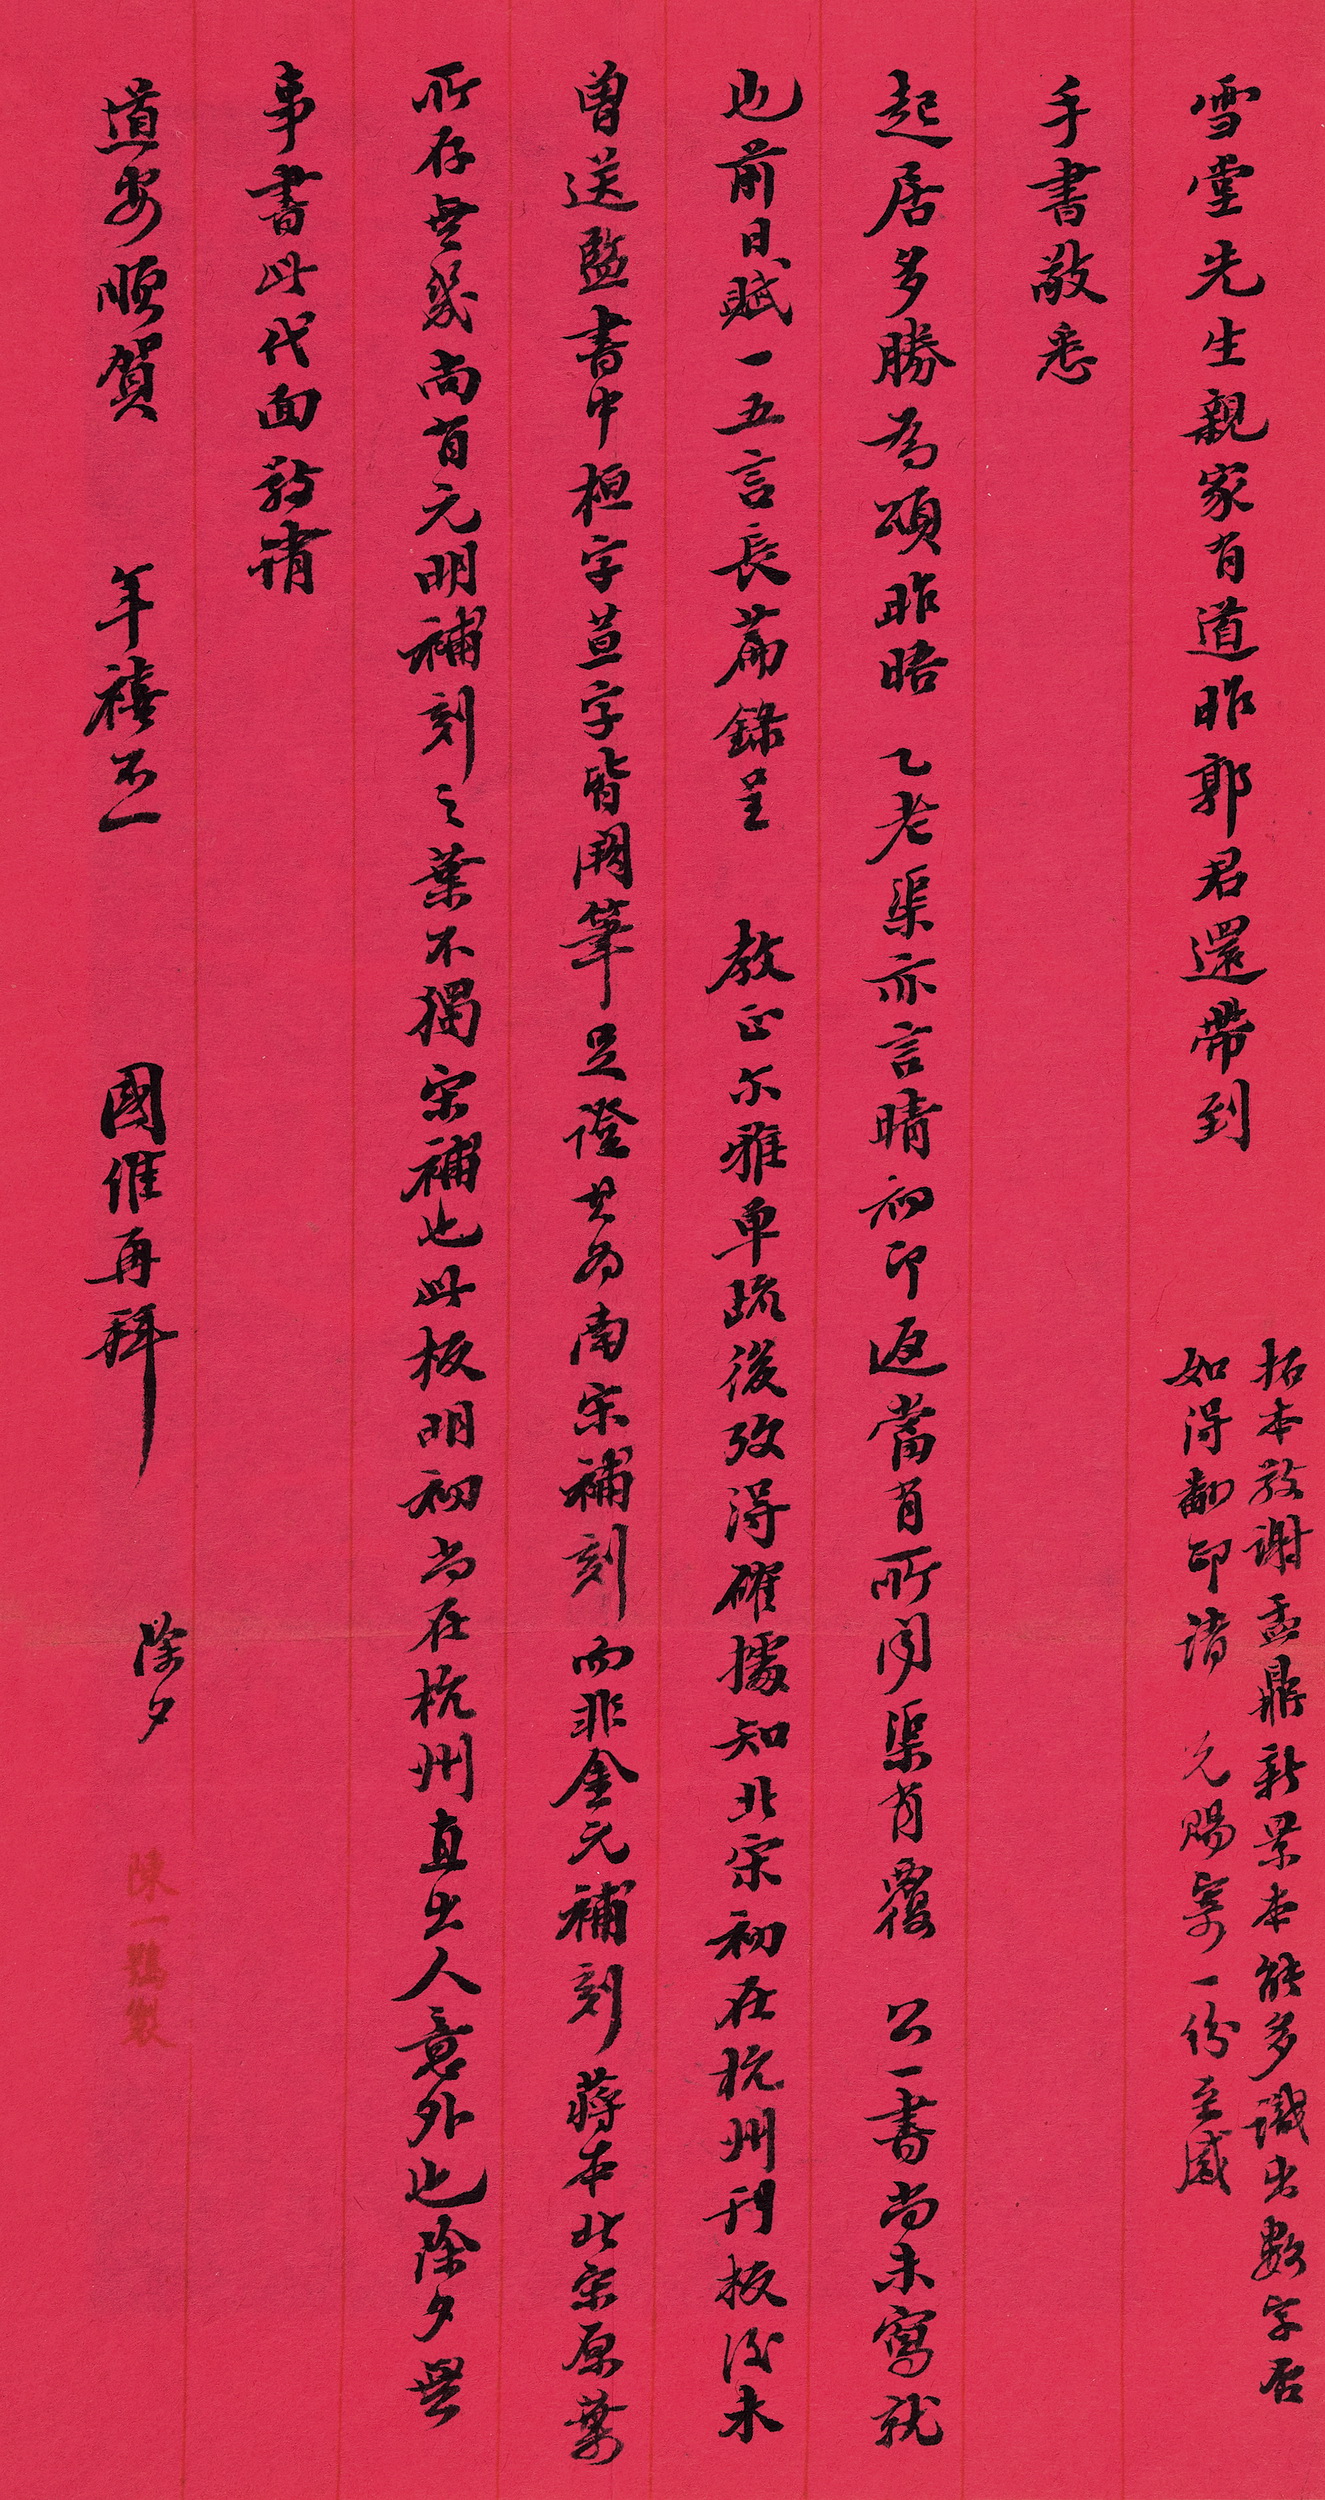 雪堂先生親家有道昨郭君還帶到
拓本敬謝盂鼎新景本能多識出數字否
如得翻印請 先賜寄一份至感
手書敬悉
起居多勝為頌昨晤 乙老渠亦言晴初印返當有所聞渠有覆 公一書尚未寫就
也前日賦一五言長篇錄呈 教正尔雅單疏後攷得確據知北宋初在杭州刊板後未
曾送監書中桓字萱字皆闕筆足證其為南宋補刻而非金元補刻蔣本北宋原葉
所存無幾尚有元明補刻之葉不獨宋補也此板明初尚在杭州直出人意外也除夕無
事書此代面敬請
道安順賀 年禧不一 國維再拜 除夕
陳一鶚製